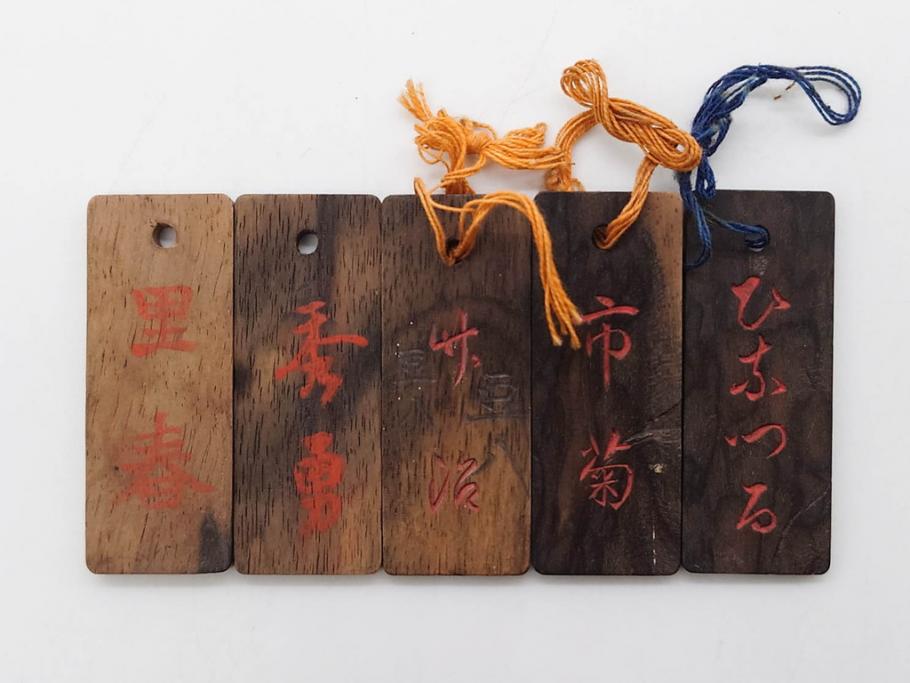 ひなつる
市菊
竹治
秀勇
里春